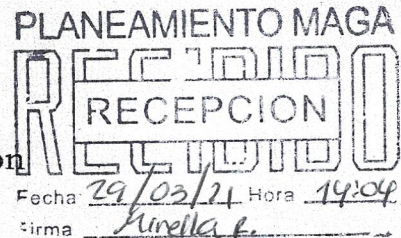 PLANEAMIENTO MAGA
RECIBIDO
RECEPCION
on
Fecha 29/03/21 Hora 14:04
Firma